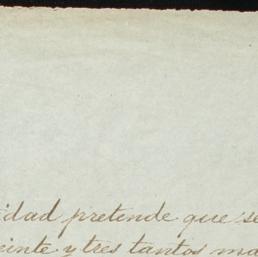 idad pretende que se
einte y tres tantos ma